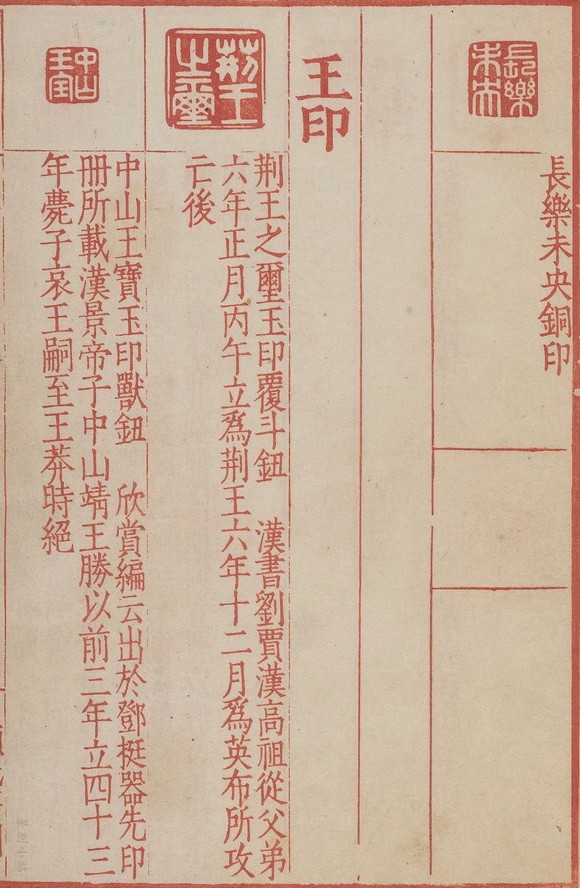 長樂未央
長樂未央銅印
王印
荆王之璽
荆王之璽玉印覆斗鈕　漢書劉賈漢高祖從父弟
六年正月丙午立爲荆王六年十二月爲英布所攻
亡後
中山王寶
中山王寶玉印獸鈕　欣賞編云出於鄧梃器先印
冊所載漢景帝子中山靖王勝以前三年立四十三
年薨子哀王嗣至王莽時絕